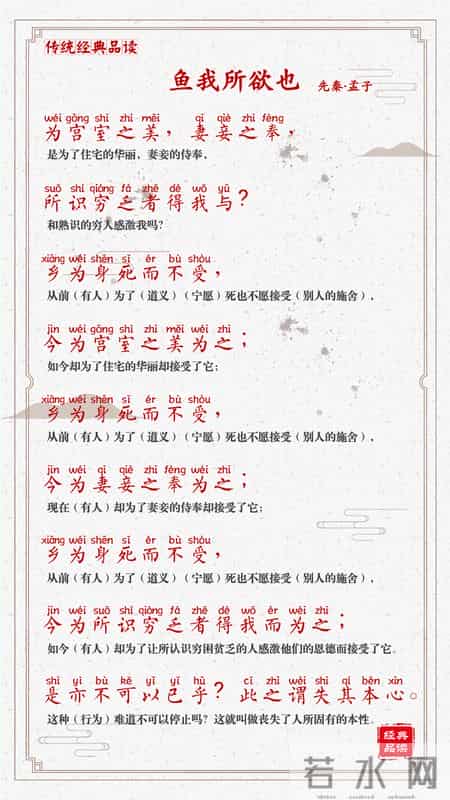 传统经典品读
鱼我所欲也 先秦·孟子
wéi gōng shì zhī měi qī qiè zhī fèng
为宫室之美，妻妾之奉，
是为了住宅的华丽、妻妾的侍奉，
suǒ shí qióng fá zhě dé wǒ yú
所识穷乏者得我与？
和熟识的穷人感激我吗？
xiàng wéi shēn sǐ ér bù shòu
乡为身死而不受，
从前（有人）为了（道义）（宁愿）死也不愿接受（别人的施舍），
jīn wéi gōng shì zhī měi wéi zhī
今为宫室之美为之；
如今却为了住宅的华丽却接受了它；
xiàng wéi shēn sǐ ér bù shòu
乡为身死而不受，
从前（有人）为了（道义）（宁愿）死也不愿接受（别人的施舍），
jīn wéi qī qiè zhī fèng wéi zhī
今为妻妾之奉为之；
现在（有人）却为了妻妾的侍奉却接受了它；
xiàng wéi shēn sǐ ér bù shòu
乡为身死而不受，
从前（有人）为了（道义）（宁愿）死也不愿接受（别人的施舍），
jīn wéi suǒ shí qióng fá zhě dé wǒ ér wéi zhī
今为所识穷乏者得我而为之；
如今（有人）却为了让所认识穷困贫乏的人感激他们的恩德而接受了它。
shì yì bù kě yǐ yǐ hū cǐ zhī wèi shī qí běn xīn
是亦不可以已乎？此之谓失其本心。
这种（行为）难道不可以停止吗？这就叫做丧失了人所固有的本性。
经典
品读
若水网